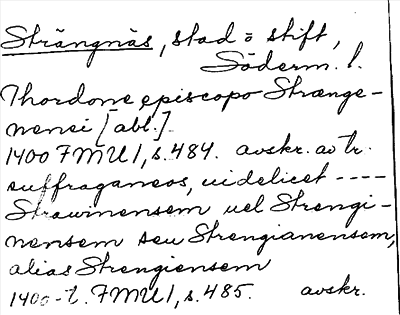 Strängnäs, stad o stift,
Söderm. l.
Thordone episcopo Strænge-
nensi [abl.].
1400 FMU 1, s. 484. avskr. av tr.
suffraganeos, uidelicet ----
Strawinensem uel Strengi-
nensem seu Strengianensem,
alias Strengiensem
1400-t. FMU 1, s. 485. avskr.